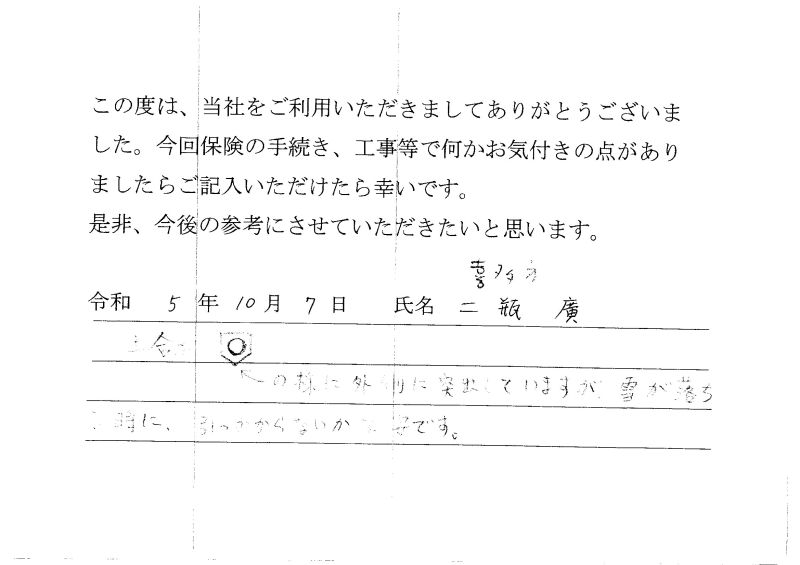 この度は、当社をご利用いただきましてありがとうございま
した。今回保険の手続き、工事等で何かお気付きの点があり
ましたらご記入いただけたら幸いです。
是非、今後の参考にさせていただきたいと思います。
喜多方
令和 5 年 10 月 7 日 氏名 二瓶 廣
の様に外側に突出していますが 雪が落ち
時に、引っかからないか です。